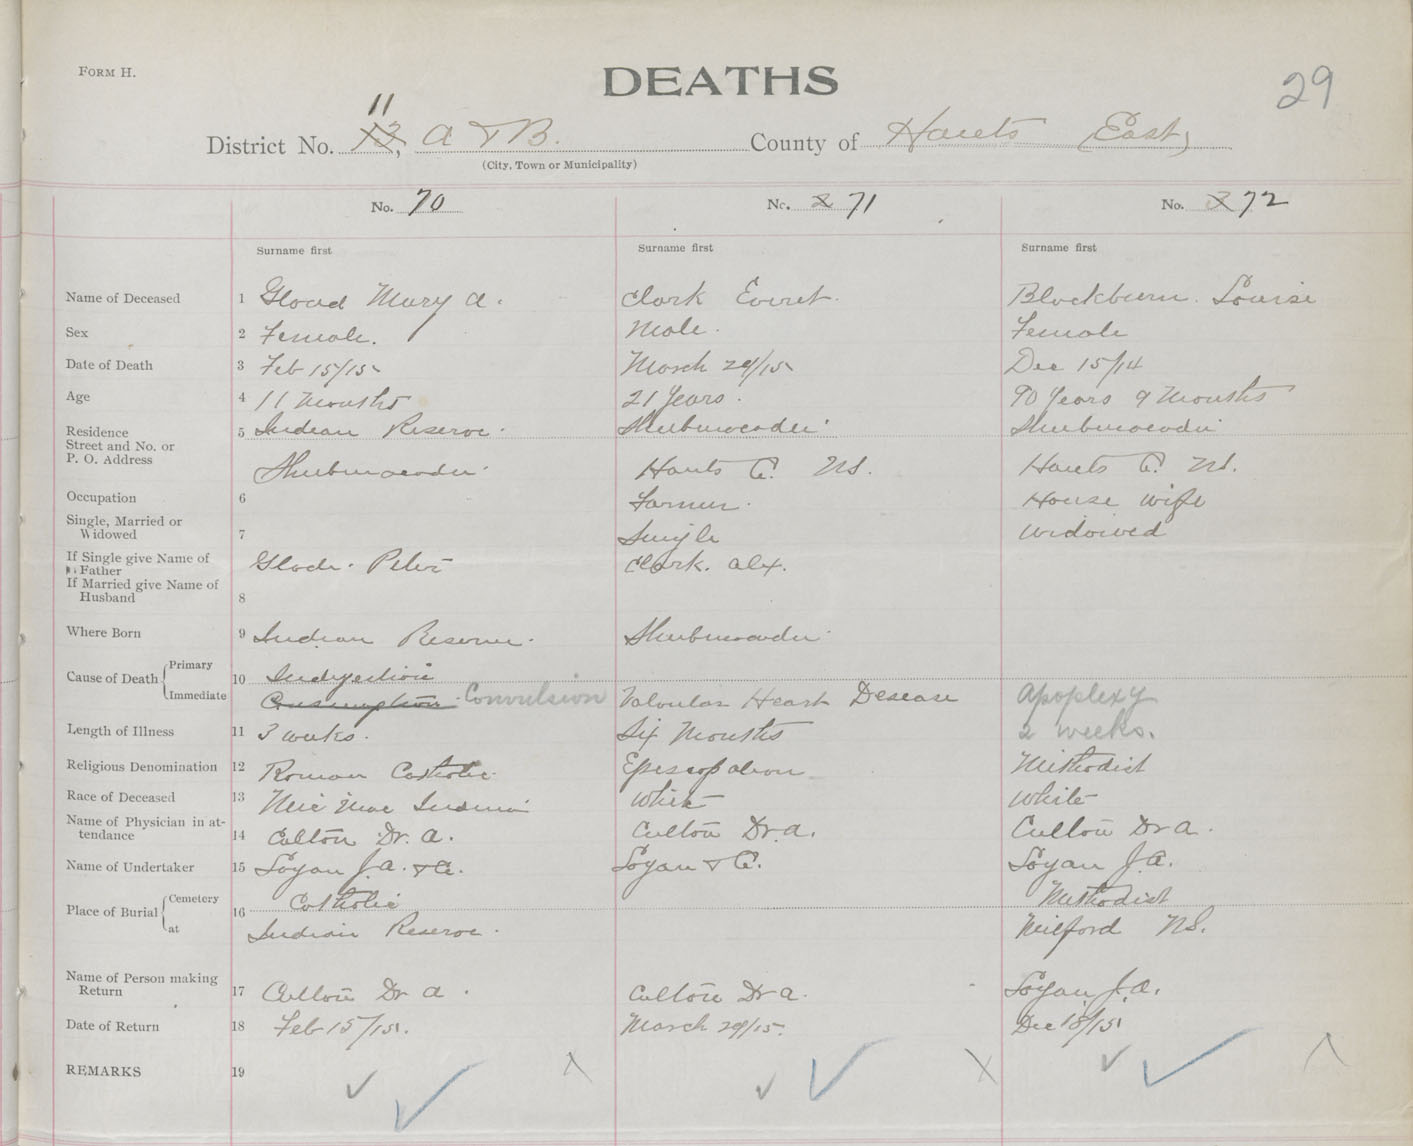 FORM H.
DEATHS
29
11
District No. 13, A & B. County of Hants (East)
(City, Town or Municipality)
No. 70 No. 2 71 No. 3 72
Surname first Surname first Surname first
Name of Deceased 1 Gloud Mary A. Clark Everet. Blackburn. Louise
Sex 2 Female. Male. Female
Date of Death 3 Feb 15/15 March 29/15 Dec 15/14
Age 4 11 Months 21 Years. 90 Years 9 Months
Residence 5 Indian Reserve. Shubenacadie Shubenacadie
Street and No. or
P. O. Address Shubenacadie Hants C. NS. Hants C. NS.
Occupation 6 Farmer. House wife
Single, Married or
Widowed 7 Single Widowed
If Single give Name of
Father Glode. Peter Clark. Alex.
If Married give Name of
Husband 8
Where Born 9 Indian Reserve. Shubenacadie
Cause of Death Primary 10 Indigestion
Immediate Consumption Convulsion Valvular Heart Desease Apoplexy
Length of Illness 11 3 weeks. Six Months 2 weeks.
Religious Denomination 12 Roman Catholic Episcopalian Methodist
Race of Deceased 13 Mic Mac Indian White White
Name of Physician in at-
tendance 14 Culton Dr. A. Culton Dr A. Culton Dr A.
Name of Undertaker 15 Logan J. A. & C. Logan & C. Logan J. A.
Place of Burial Cemetery 16 Catholic Methodist
at Indian Reserve. Milford NS.
Name of Person making
Return 17 Culton Dr A. Culton Dr A. Logan J. A.
Date of Return 18 Feb 15/15. March 29/15. Dec 18/15
REMARKS 19